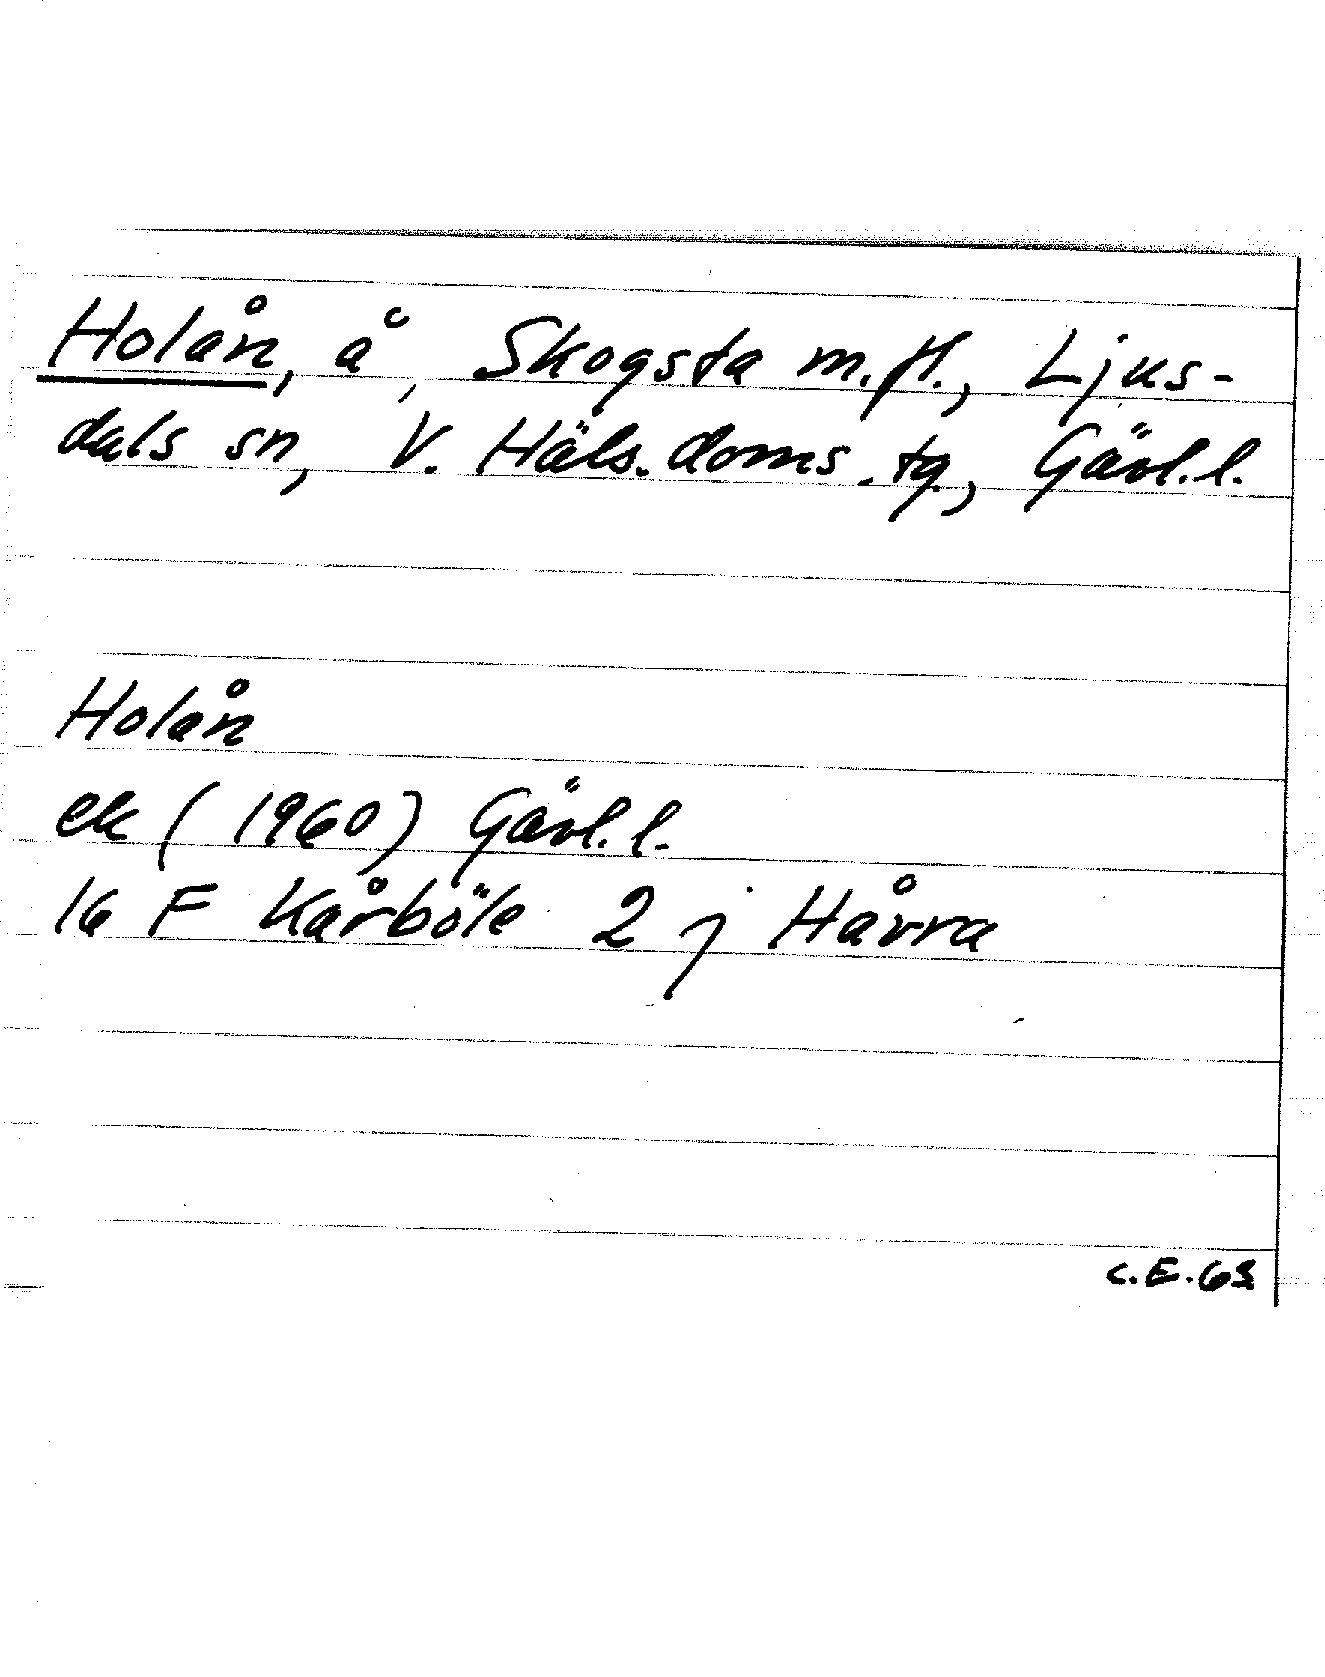 Holån, å, Skogsta m.fl., Ljus-
dals sn, V. Häls. doms.tg., Gävl.l.
Holån
ek (1960) Gävl.l.
16 F Kårböle 2 j Håvra
C.E.63